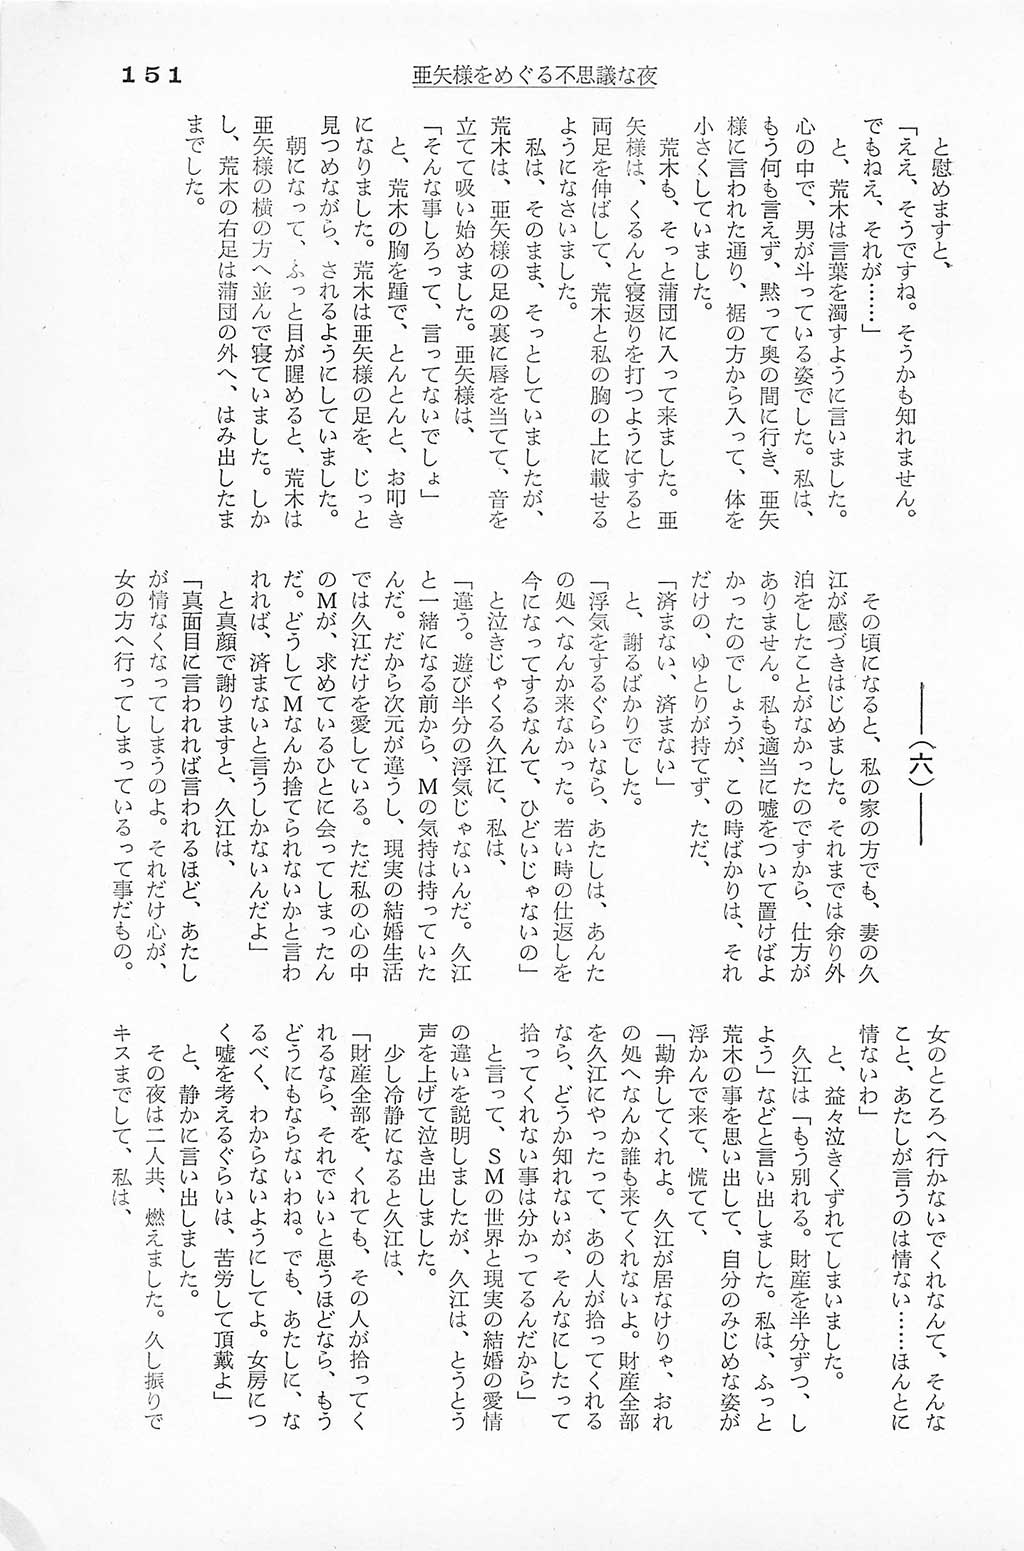 151
亜矢様をめぐる不思議な夜
と慰めますと、
「ええ、そうですね。そうかも知れません。
でもねえ、それが……」
と、荒木は言葉を濁すように言いました。
心の中で、男が斗っている姿でした。私は、
もう何も言えず、黙って奥の間に行き、亜矢
様に言われた通り、裾の方から入って、体を
小さくしていました。
荒木も、そっと蒲団に入って来ました。亜
矢様は、くるんと寝返りを打つようにすると
両足を伸ばして、荒木と私の胸の上に載せる
ようになさいました。
私は、そのまま、そっとしていましたが、
荒木は、亜矢様の足の裏に唇を当てて、音を
立てて吸い始めました。亜矢様は、
「そんな事しろって、言ってないでしょ」
と、荒木の胸を踵で、とんとんと、お叩き
になりました。荒木は亜矢様の足を、じっと
見つめながら、されるようにしていました。
朝になって、ふっと目が醒めると、荒木は
亜矢様の横の方へ並んで寝ていました。しか
し、荒木の右足は蒲団の外へ、はみ出したま
までした。
――(六)――
その頃になると、私の家の方でも、妻の久
江が感づきはじめました。それまでは余り外
泊をしたことがなかったのですから、仕方が
ありません。私も適当に嘘をついて置けばよ
かったのでしょうが、この時ばかりは、それ
だけの、ゆとりが持てず、ただ、
「済まない、済まない」
と、謝るばかりでした。
「浮気をするぐらいなら、あたしは、あんた
の処へなんか来なかった。若い時の仕返しを
今になってするなんて、ひどいじゃないの」
と泣きじゃくる久江に、私は、
「違う。遊び半分の浮気じゃないんだ。久江
と一緒になる前から、Mの気持は持っていた
んだ。だから次元が違うし、現実の結婚生活
では久江だけを愛している。ただ私の心の中
のMが、求めているひとに会ってしまったん
だ。どうしてMなんか捨てられないかと言わ
れれば、済まないと言うしかないんだよ」
と真顔で謝りますと、久江は、
「真面目に言われれば言われるほど、あたし
が情なくなってしまうのよ。それだけ心が、
女の方へ行ってしまっているって事だもの。
女のところへ行かないでくれなんて、そんな
こと、あたしが言うのは情ない……ほんとに
情ないわ」
と、益々泣きくずれてしまいました。
久江は「もう別れる。財産を半分ずつ、し
よう」などと言い出しました。私は、ふっと
荒木の事を思い出して、自分のみじめな姿が
浮かんで来て、慌てて、
「勘弁してくれよ。久江が居なけりゃ、おれ
の処へなんか誰も来てくれないよ。財産全部
を久江にやったって、あの人が拾ってくれる
なら、どうか知れないが、そんなにしたって
拾ってくれない事は分かってるんだから」
と言って、SMの世界と現実の結婚の愛情
の違いを説明しましたが、久江は、とうとう
声を上げて泣き出しました。
少し冷静になると久江は、
「財産全部を、くれても、その人が拾ってく
れるなら、それでいいと思うほどなら、もう
どうにもならないわね。でも、あたしに、な
るべく、わからないようにしてよ。女房につ
く嘘を考えるぐらいは、苦労して頂戴よ」
と、静かに言い出しました。
その夜は二人共、燃えました。久し振りで
キスまでして、私は、